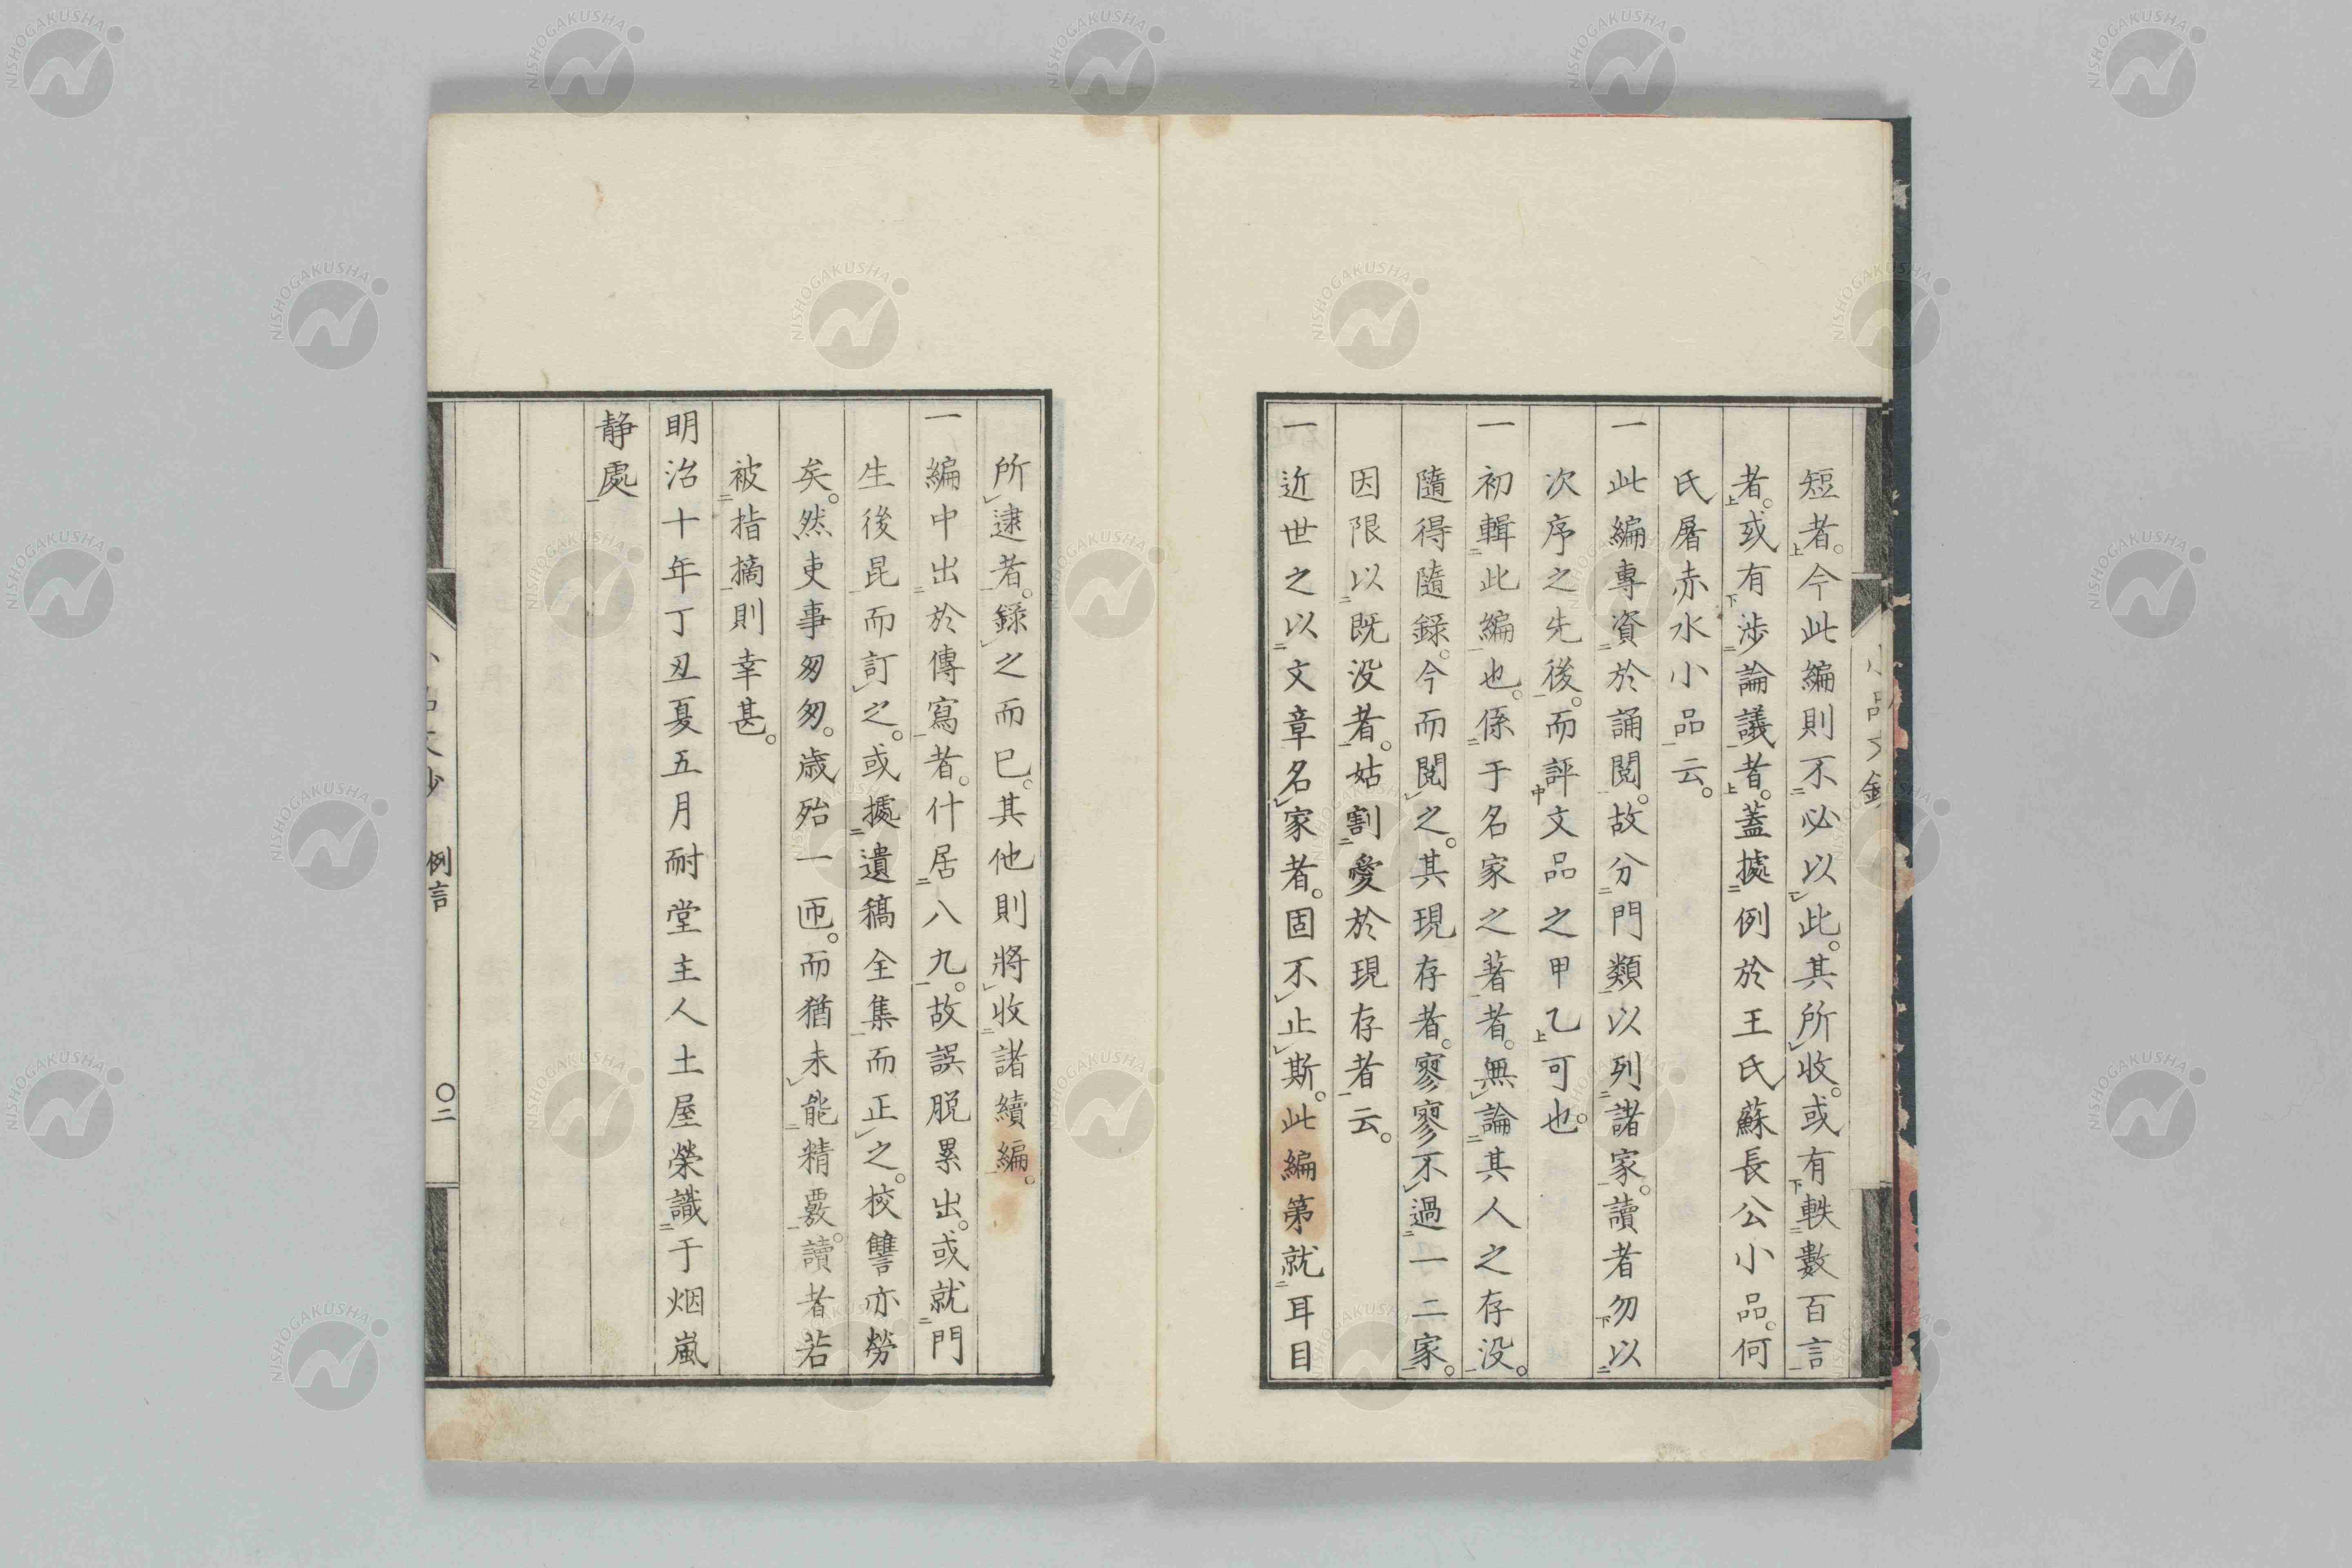 短者。今此編則不必以此。其所收。或有軼數百言
者。或有涉論議者。蓋據例於王氏蘇長公小品。何
氏屠赤水小品云。
一此編專資於誦閱。故分門類以列諸家。讀者勿以
次序之先後。而評文品之甲乙可也。
一初輯此編也。係于名家之著者。無論其人之存没。
隨得隨錄。今而閱之。其現存者。寥寥不過一二家。
因限以既没者。姑割愛於現存者云。
一近世之以文章名家者。固不止斯。此編第就耳目
所逮者。錄之而已。其他則將收諸續編。
一編中出於傳寫者。什居八九。故誤脱累出。或就門
生後昆而訂之。或據遺稿全集而正之。校讐亦勞
矣。然吏事匆匆。歳殆一匝。而猶未能精覈。讀者若
被指摘則幸甚。
明治十年丁丑夏五月耐堂主人土屋榮識于烟嵐
静處
例言
〇二
NISHOGAKUSHA